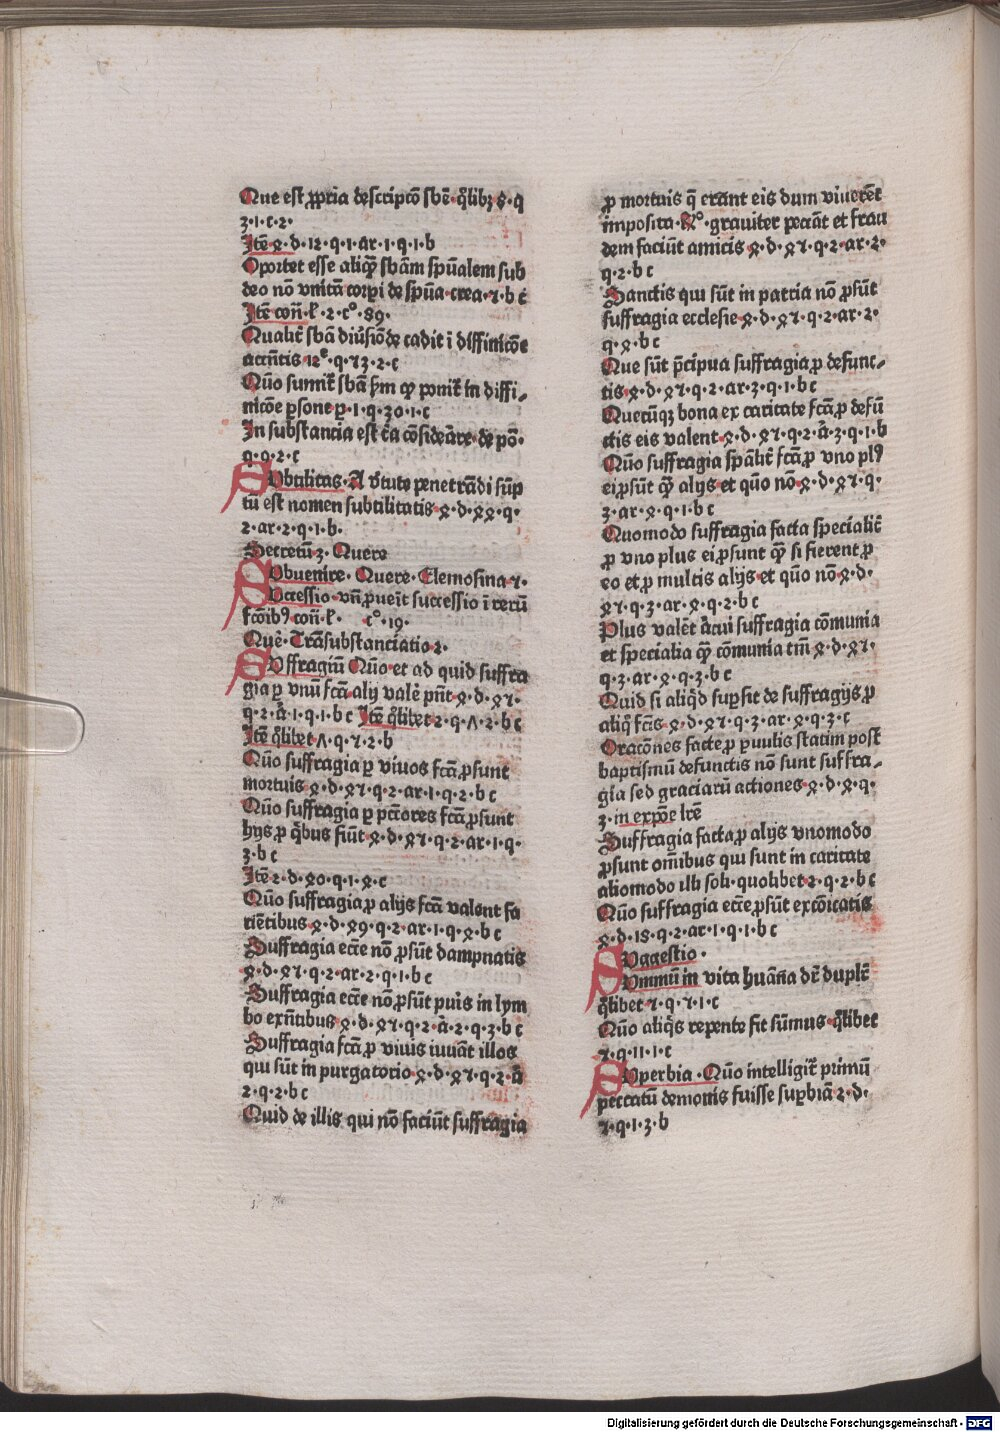 Que est ꝓpria descripcō sbē· q̄libꝫ 8· q
3·ı·c·2·
Itē ꝝ·d·12·q·ı·ar·ı·q·ı·b
Oportet esse aliqꝫ sbām spūalem sub
deo nō vnitā corpi de spūa crea·ꝛ·b c
Itē con̄·k̄·2·c°·89·
Qualit̄ sbā diuīsiōe cadit ī diffinicōe
accn̄tis
Quō sumit̄ sbā
nicōe ꝑsone ꝑ·ı·q·30·ı·c
In substancia est
q·9·2·c
SVbtilitas·A v̄tute penetrādi sūp
tū est nomen subtilitatis ꝝ·d·ꝝꝝ·q·
2·ar·2·q·ı·b·
Secretū 3· Quere
SVbuenire· Quere· Elemosina ꝛ·
SVccessio· vn̄ ꝓueīt successio ī rerū
con̄·k̄· c°·19·
Quē· Trāsubstanciatio 2·
SVffragiū Quō et ad quid suffra
gia ꝑ vnū fcā alij valē pn̄t ꝝ·d·ꝝꝛ·
q·2·ā·ı·q·ı·b c Itē q̄libet 2·q·ʌ·2·b c
Itē q̄libet ʌ·q·ꝛ·2·b
Quō suffragia ꝑ viuos fcā ꝓsunt
mortuis ꝝ·d·ꝝꝛ·q·2·ar·ı·q·2·b c
Quō suffragia ꝑ pcc̄ores fcā ꝓsunt
hys ꝓ q̄bus fiūt ꝝ·d·ꝝꝛ·q·2·ar·ı·q·
3·b c
Itē 2·d·ꝝ0·q·ı·ꝝ·c
Quō suffragia ꝓ alijs fcā valent fa
ciētibus ꝝ·d·ꝝ9·q·2·ar·ı·q·ꝝ·b c
Suffragia ecc̄e nō ꝓsūt dampnatis
ꝝ·d·ꝝꝛ·q·2·ar·2·q·ı·b c
Suffragia ecc̄e nō ꝓsūt puīs in lym
bo exn̄tibus ꝝ·d·ꝝꝛ·q·2·ā·2·q·3·b c
Suffragia fcā ꝓ viuis iuuāt illos
qui sūt in purgatorio ꝝ·d·ꝝꝛ·q·2·ā
2·q·2·b c
Quid de illis qui nō faciūt suffragia
ꝓ mortuis q̄ erant eis dum viuerēt
imposita·R°·grauiter peccāt et frau
dem faciūt amicis ꝝ·d·ꝝꝛ·q·2·ar·2·
q·2·b c
Sanctis qui sūt in patria nō ꝓsūt
suffragia ecclesie ꝝ·d·ꝝꝛ·q·2·ar·2·
q·ꝝ·b c
Que sūt p̄cipua suffragia ꝓ defunc⸗
tis ꝝ·d·ꝝꝛ·q·2·ar·3·q·ı·b c
Quecūqꝫ bona ex caritate fcā ꝓ defū
ctis eis valent ꝝ·d·ꝝꝛ·q·2·ā·3·q·ı·b
Quō suffragia spālit̄ fcā ꝓ vno plꝰ
ei ꝓsūt qꝫ alijs et quō nō ꝝ·d·ꝝꝛ·q·
3·ar·ꝝ·q·ı·b c
Quomodo suffragia facta specialit̄
ꝓ vno plus ei ꝓsunt qꝫ si fierent ꝓ
eo et ꝓ multis alijs et quō nō ꝝ·d·
ꝝꝛ·q·3·ar·ꝝ·q·2·b c
Plus valēt alicui suffragia cōmunia
et specialia qꝫ cōmunia tm̄ ꝝ·d·ꝝꝛ·
q·3·ar·ꝝ·q·3·b c
Quid si aliq̄d suꝑsit de suffragijs ꝓ
aliq̄ fcīs ꝝ·d·ꝝꝛ·q·3·ar·ꝝ·q·3·c
Oracōnes facte ꝓ puulis statim post
baptismū defunctis nō sunt suffra⸗
gia sed graciarū actiones ꝝ·d·ꝝ·q·
3·in expōe lr̄e
Suffragia facta ꝓ alijs vnomodo
ꝓsunt om̄ibus qui sunt in caritate
aliomodo illi soli·quolibet 2·q·2·b c
Quō suffragia ecc̄e ꝓsūt excōicatis
ꝝ·d·18·q·2·ar·ı·q·ı·b c
SVggestio·
SVmmū in vita huāna dr̄ duplr̄
q̄libet ꝛ·q·ꝛ·ı·c
Quō aliq̄s repente fit sūmus·q̄libet
ꝛ·q·ıı·ı·c
SVperbia·Quō intelligit̄ primū
peccatū demonis fuisse suꝑbiā 2·d·
ꝛ·q·ı·3·b
Digitalisierung gefördert durch die Deutsche Forschungsgemeinschaft - DFG